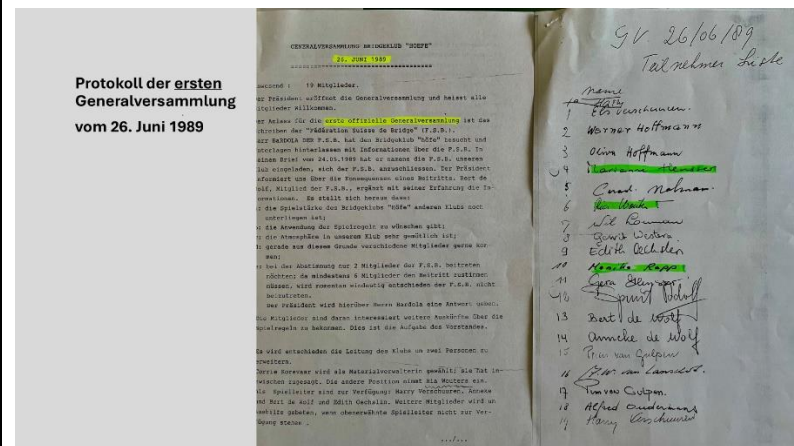 Protokoll der ersten
Generalversammlung
vom 26. Juni 1989
GENERALVERSAMMLUNG BRIDGEKLUB "HOEFE"
26. JUNI 1989
19 Mitglieder.
Präsident eröffnet die Generalversammlung und heisst alle
Mitglieder Willkommen.
Anlass für die erste offizielle Generalversammlung ist das
Schreiben der "Fédération Suisse de Bridge" (F.S.B.).
BARDOLA DER F.S.B. hat den Bridgeklub "Höfe" besucht und
Unterlagen hinterlassen mit Informationen über die F.S.B. In
seinem Brief vom 24.05.1989 hat er namens die F.S.B. unseren
Klub eingeladen, sich der F.S.B. anzuschliessen. Der Präsident
informiert uns über die Konsequenzen eines Beitritts. Bert de
Wolf, Mitglied der F.S.B., ergänzt mit seiner Erfahrung die In-
formationen. Es stellt sich heraus dass:
die Spielstärke des Bridgeklubs "Höfe" anderen Klubs noch
unterliegen ist;
die Anwendung der Spielregeln zu wünschen gibt;
die Atmosphäre in unserem Klub sehr gemütlich ist;
gerade aus diesem Grunde verschiedene Mitglieder gerne kom-
men;
bei der Abstimmung nur 2 Mitglieder der F.S.B. beitreten
möchten; da mindestens 6 Mitglieder den Beitritt zustimmen
müssen, wird momentan eindeutig entschieden der F.S.B. nicht
beizutreten.
Der Präsident wird hierüber Herrn Bardola eine Antwort geben.
Die Mitglieder sind daran interessiert weitere Auskünfte über die
Spielregeln zu bekommen. Dies ist die Aufgabe des Vorstandes.
Es wird entschieden die Leitung des Klubs um zwei Personen zu
erweitern.
Corrie Korevaar wird als Materialverwalterin gewählt; sie hat in-
zwischen zugesagt. Die andere Position nimmt Ria Wouters ein.
Als Spielleiter sind zur Verfügung: Harry Verschuuren, Anneke
und Bert de Wolf und Edith Oechslin. Weitere Mitglieder wird un-
gebeten, wenn obenerwähnte Spielleiter nicht zur Ver-
fügung stehen.
GV 26/06/89
Teilnehmer Liste
name
1 Els Verschuuren.
2 Werner Hoffmann
3 Hoffmann
4 Marianne
5
6
7
8 Gerrit Westera
9 Edith Oechslin
10 Monika Rapp
11 Gera
12
13 Bert de Wolf
14 Anneke de Wolf
15 van Gulpen
16
17 van Gulpen.
18 Alfred
19 Harry Verschuuren